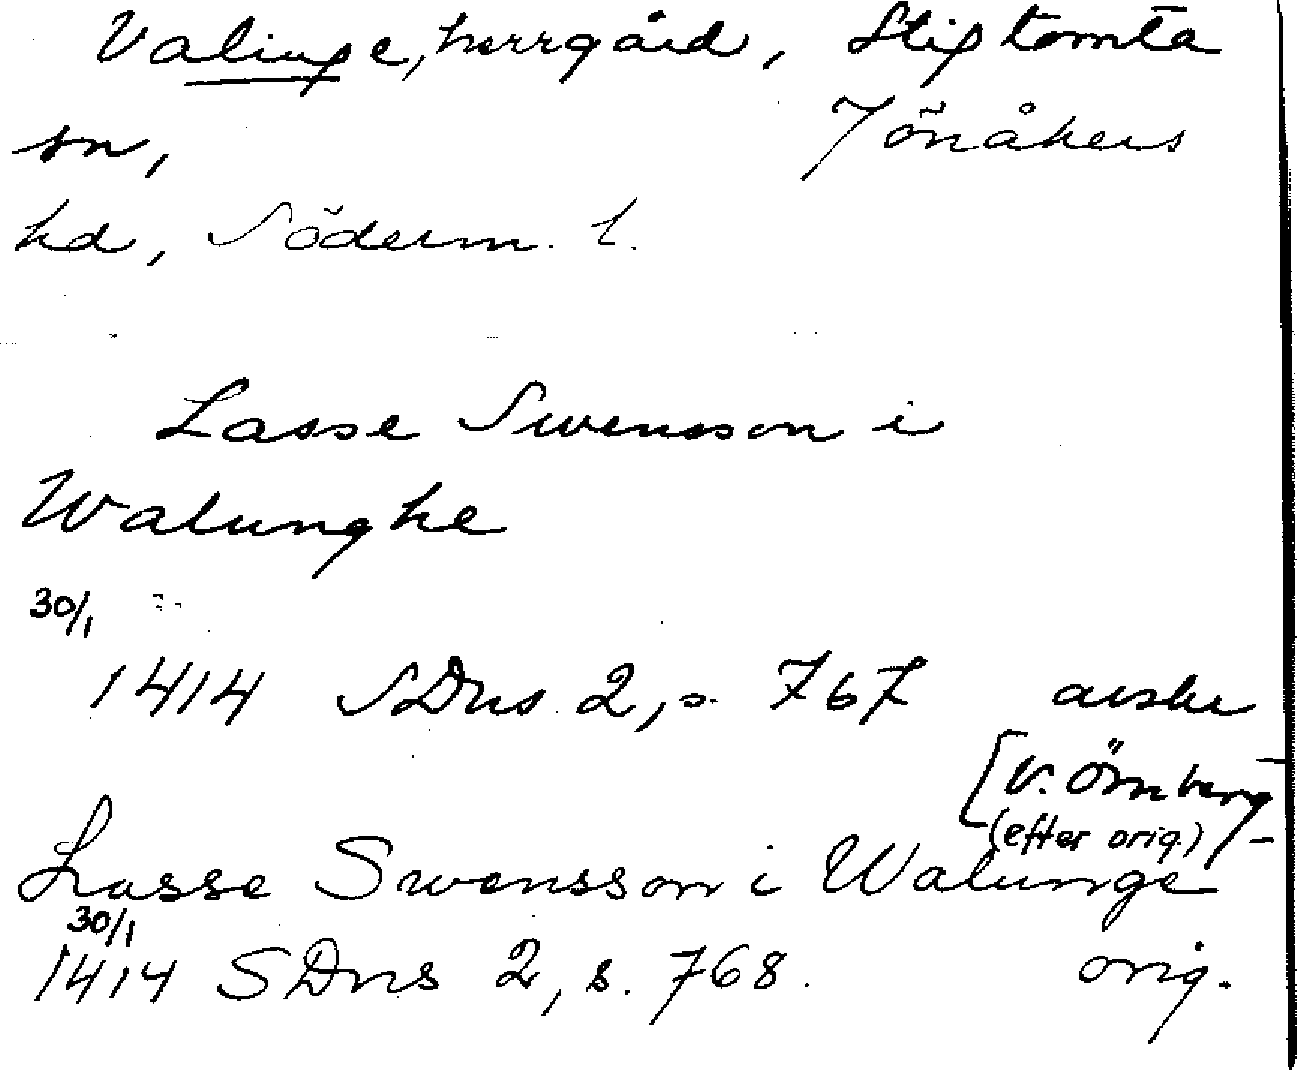 Valinge, herrgård, Stigtomta
sn, Jönåkers
hd, Söderm. l.
Lasse Swensson i
Walunghe
30/1
1414 SDns 2, s. 767 avskr
[v. Örnberg
(efter orig.)]
Lasse Swensson i Walunge
30/1
1414 SDns 2, s. 768. orig.